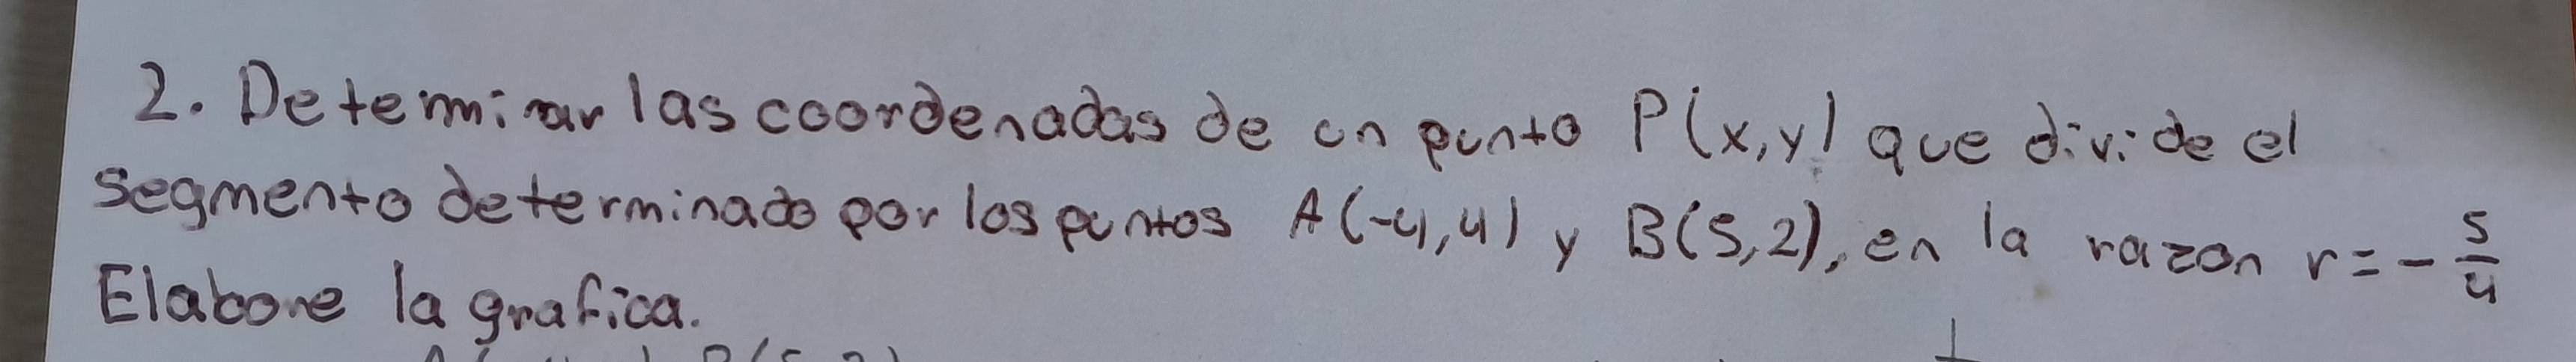 2. Determinar las coordenadas de un punto P(x,y) que divide el
segmento determinado por los puntos A(-4,4) y B(5,2), en la razon r=-5/4
Elabore la grafica.